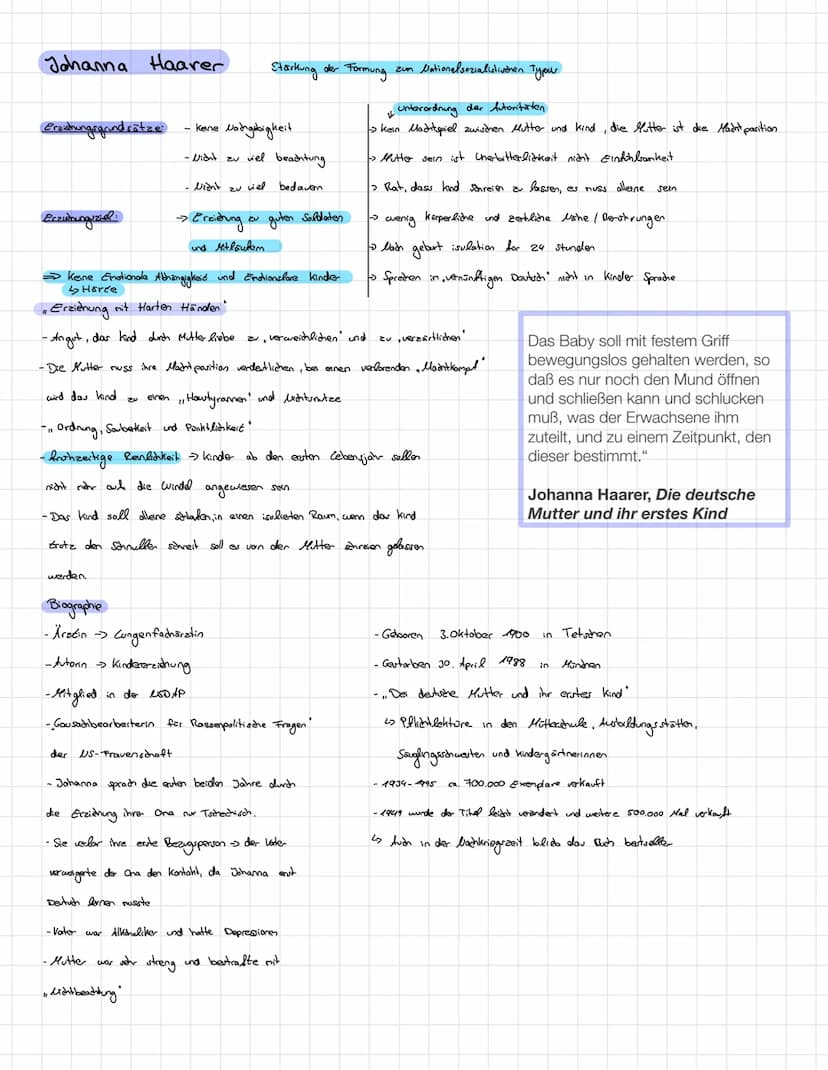 Johanna Haarer
Stärkung der Formung zum Nationalsozialistischen Typus
Unterordnung der Autoritäten
Erziehungsgrundsätze:
- Keine Nachgiebigkeit
- Nicht zu viel beachtung
- Nicht zu viel bedauern
Erziehungsziel:
→ Erziehung zu guten Soldaten
und Mitläufern
⇒ Keine Emotionale Abhängigkeit und Emotionslose Kinder
↳ Härte
→ Kein Machtspiel zwischen Mutter und Kind, die Mutter ist die Machtposition
→ Mutter sein ist Unerbittlichkeit nicht Einfühlsamkeit
→ Rat, dass kind schreien zu lassen, es muss alleine sein
→ wenig körperliche und zärtliche Nähe / Berührungen
→ Nach geburt isolation für 24 Stunden
→ Sprechen in „vernünftigen Deutsch" nicht in Kinder Sprache
„Erziehung mit Harten Händen"
- Angst, das Kind durch Mutterliebe zu „verweichlichen" und zu „verzärtlichen"
- Die Mutter muss ihre Machtposition verdeutlichen, bei einen verlorenden „Machtkampf"
wird das Kind zu einen „Haustyrannen" und Nichtsnutze
- „Ordnung, Sauberkeit und Pünktlichkeit"
- frühzeitige Reinlichkeit → Kinder ab den ersten Lebensjahr sollen
nicht mehr auf die Windel angewiesen sein
- Das Kind soll alleine schlafen, in einen isolierten Raum, wenn das kind
trotz den Schnuller schreit soll es von der Mutter schreien gelassen
werden.
Das Baby soll mit festem Griff
bewegungslos gehalten werden, so
daß es nur noch den Mund öffnen
und schließen kann und schlucken
muß, was der Erwachsene ihm
zuteilt, und zu einem Zeitpunkt, den
dieser bestimmt.“
Johanna Haarer, Die deutsche
Mutter und ihr erstes Kind
Biographie
- Ärztin → Lungenfachärztin
- Autorin → Kindererziehung
- Mitglied in der NSDAP
- „Gausachbearbeiterin für Rassenpolitische Fragen"
der NS-Frauenschaft
- Johanna sprach die ersten beiden Jahre durch
die Erziehung ihrer Oma nur Tschechisch.
- Sie verlor ihre erste Bezugsperson → der Vater
verweigerte der Oma den Kontakt, da Johanna erst
Deutsch lernen musste
- Vater war Alkoholiker und hatte Depressionen
- Mutter war sehr streng und bestrafte mit
„Nichtbeachtung"
- Geboren 3. Oktober 1900 in Tetschen
- Gestorben 30. April 1988 in München
- „Die deutsche Mutter und ihr erstes Kind"
↳ Pflichtlektüre in den Mütterschule, Ausbildungsstätten,
Säuglingsschwestern und Kindergärtnerinnen
- 1934-1945 ca. 700.000 Exemplare verkauft
- 1949 wurde der Titel leicht verändert und weitere 500.000 Mal verkauft
↳ Auch in der Nachkriegszeit blieb das Buch bestseller